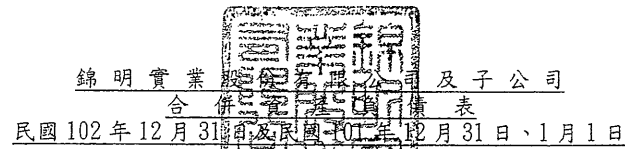 錦明實業股份有限公司及子公司
合併資產負債表
民國102年12月31日及民國101年12月31日、1月1日